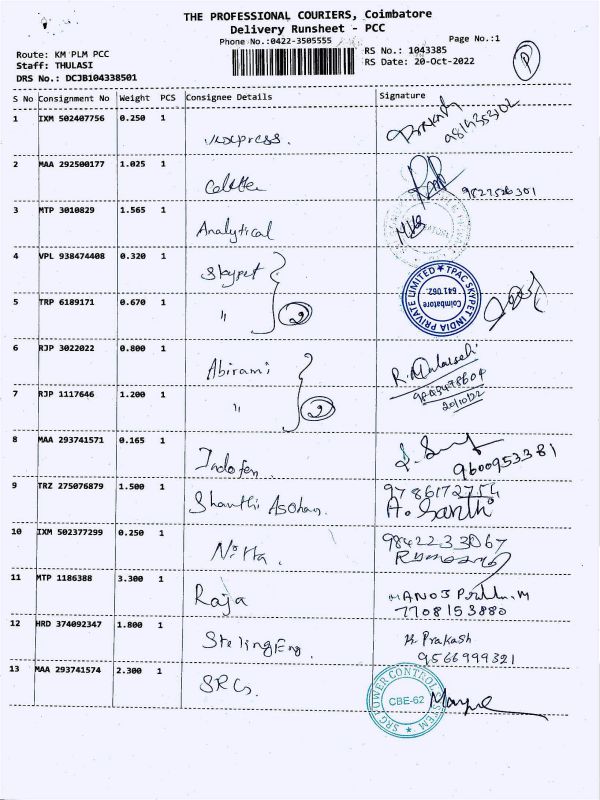 THE PROFESSIONAL COURIERS, Coimbatore
Delivery Runsheet - PCC
Phone No.:0422-3505555
Page No.:1
Route: KM PLM PCC
RS No.: 1043385
Staff: THULASI
RS Date: 20-Oct-2022
P
DRS No.: DCJB104338501
S No Consignment No Weight PCS Consignee Details Signature
1 IXM 502407756 0.250 1
Prakash
2 MAA 292500177 1.025 1
3 MTP 3010829 1.565 1 Analytical
4 VPL 938474408 0.320 1 Skypet
TPAC SKYPET INDIA PRIVATE LIMITED
Coimbatore
641 062.
5 TRP 6189171 0.670 1 " 2
6 RJP 3022022 0.800 1 Abirami
7 RJP 1117646 1.200 1 " 2
20/10/22
8 MAA 293741571 0.165 1 Indofen.
9600953381
9 TRZ 275076879 1.500 1 Shanthi Asohan.
9786172754
A. Santhi
10 IXM 502377299 0.250 1
9842233067
11 MTP 1186388 3.300 1 Raja
MANOJ
7708153880
12 HRD 374092347 1.800 1 Steling Eng.
K. Prakash
9566999321
13 MAA 293741574 2.300 1 SRG.
SRG POWER CONTROL SYSTEM
CBE-62